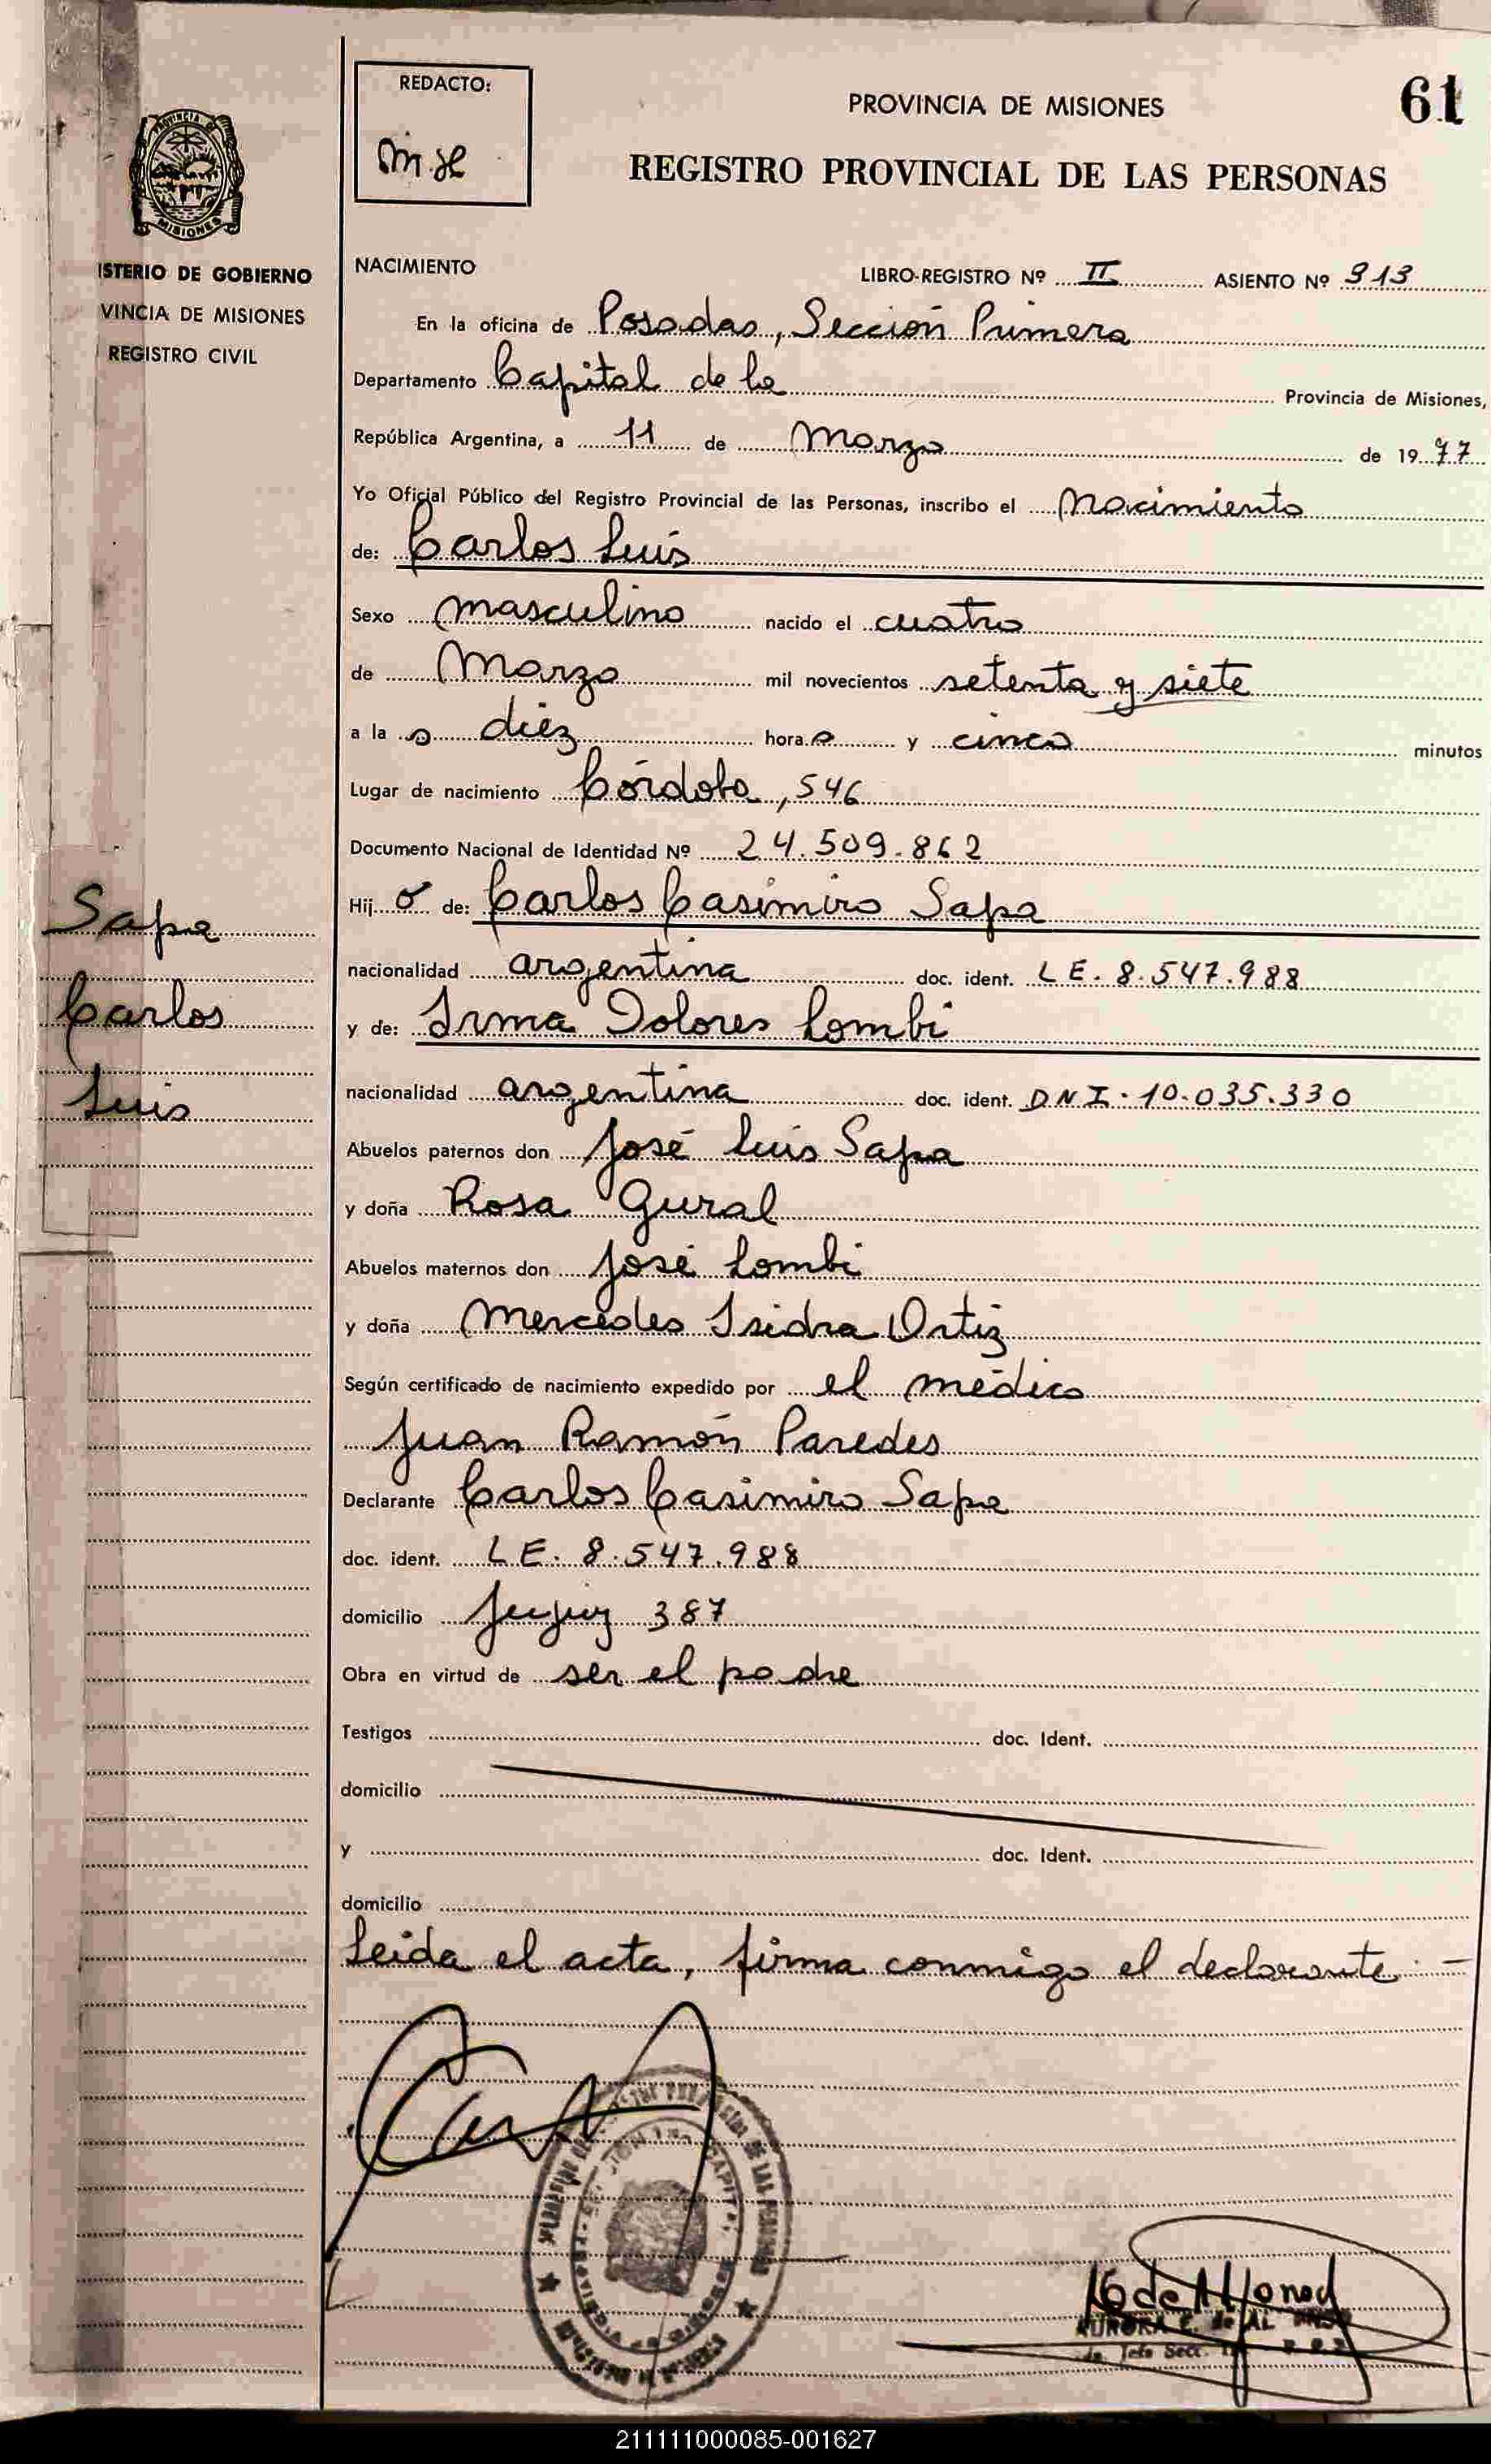 REDACTO:
PROVINCIA DE MISIONES
61
REGISTRO PROVINCIAL DE LAS PERSONAS
PROVINCIA DE
MISIONES
ISTERIO DE GOBIERNO
VINCIA DE MISIONES
REGISTRO CIVIL
NACIMIENTO
LIBRO-REGISTRO Nº II ASIENTO Nº 313
En la oficina de Posadas, Sección Primera
Departamento Capital de la Provincia de Misiones,
República Argentina, a 11 de Marzo de 1977
Yo Oficial Público del Registro Provincial de las Personas, inscribo el Nacimiento
de: Carlos Luis
Sexo masculino nacido el cuatro
de Marzo mil novecientos setenta y siete
a la s diez hora s y cinco minutos
Lugar de nacimiento Córdoba, 546
Documento Nacional de Identidad Nº 24.509.862
Hij o de: Carlos Casimiro Sapa
nacionalidad argentina doc. ident. L E. 8.547.988
y de: Irma Dolores Lombi
nacionalidad argentina doc. ident. D N I. 10.035.330
Abuelos paternos don José Luis Sapa
y doña Rosa Gural
Abuelos maternos don José Lombi
y doña Mercedes Isidra Ortiz
Según certificado de nacimiento expedido por el médico
Juan Ramón Paredes
Declarante Carlos Casimiro Sapa
doc. ident. L E. 8.547.988
domicilio Jujuy 387
Obra en virtud de ser el padre
Testigos doc. Ident.
domicilio
y doc. Ident.
domicilio
Leida el acta, firma conmigo el declarante. -
Sapa
Carlos
Luis
AURORA E. de
211111000085-001627